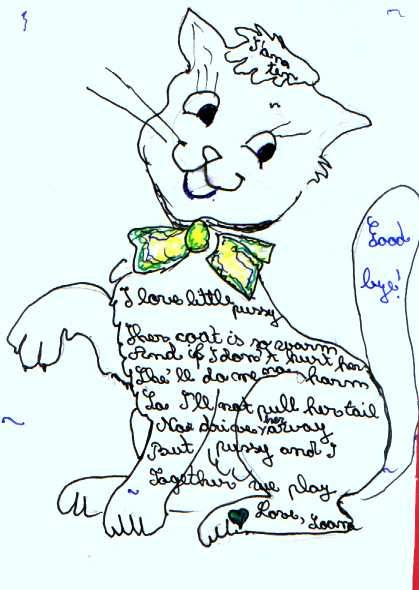 I love little pussy
Her coat is so warm
And if I don't hurt her
She'll do me no harm
So I'll not pull her tail
Nor drive her away
But pussy and I
Together we play
Love, Joan
Good
bye!